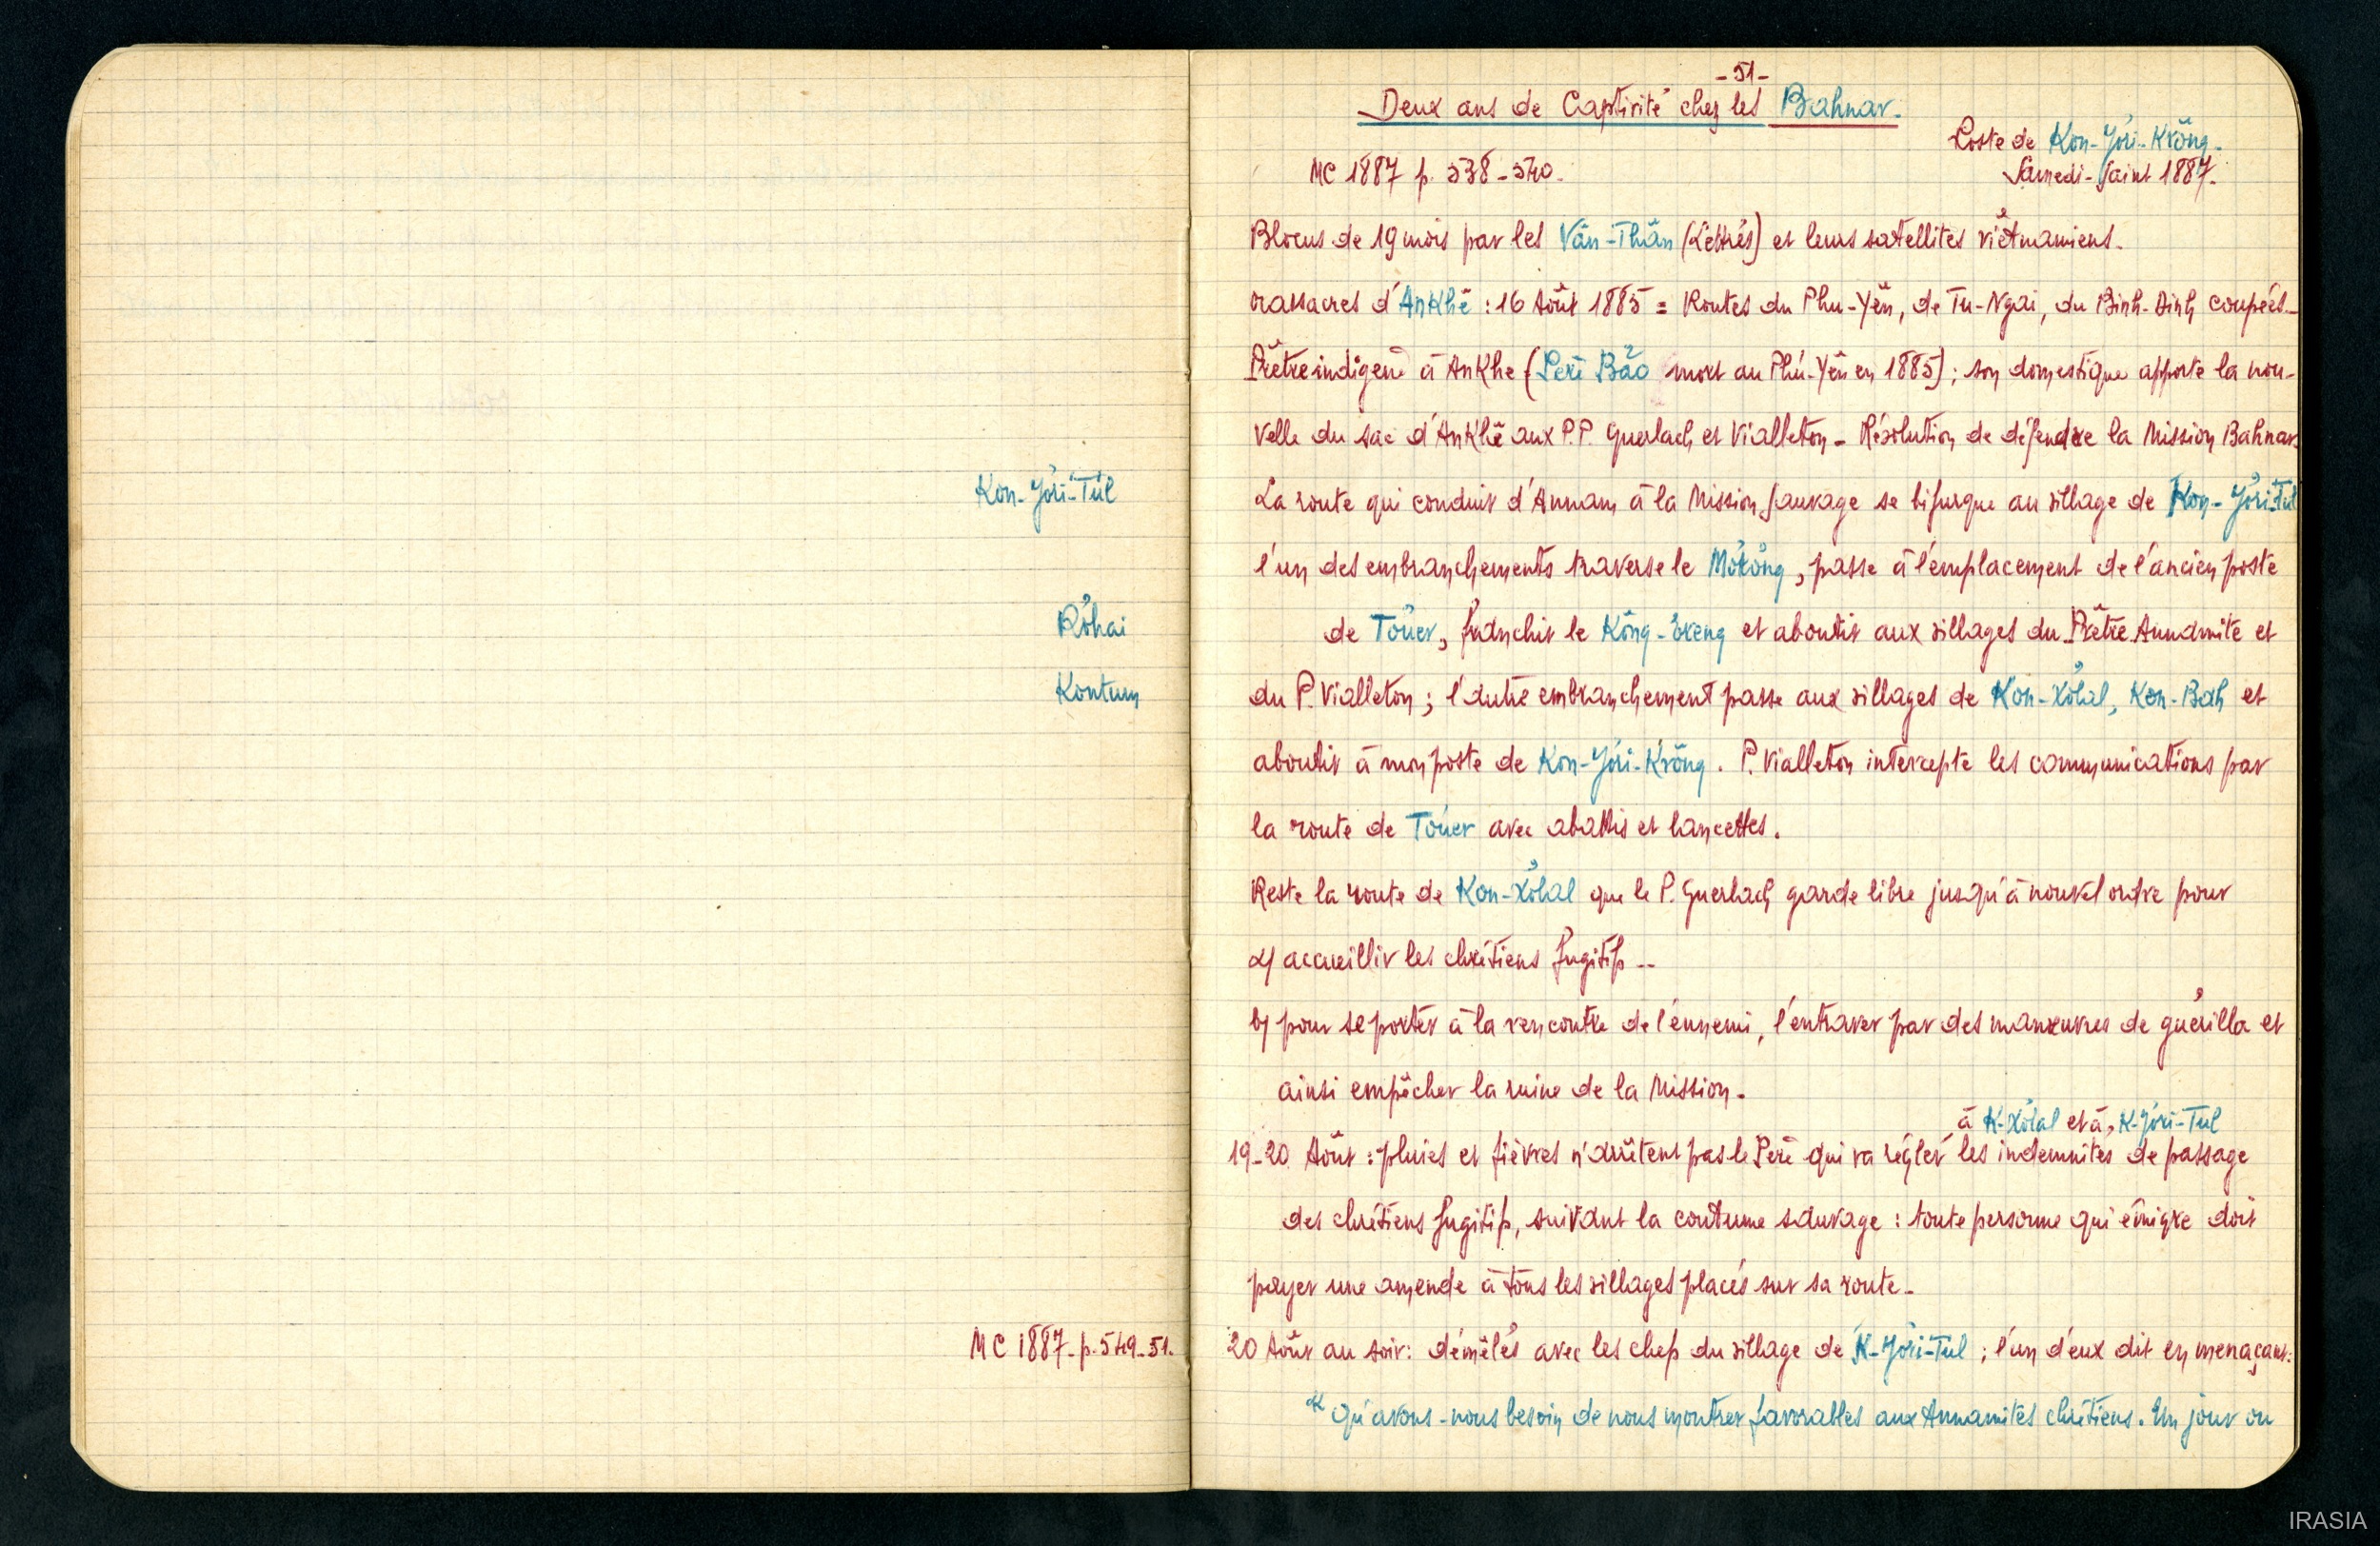 Kon-Jơri-Tul
Rơhai
Kontum
MC 1887 - p. 549-51.
- 51 -
Deux ans de Captivité chez les Bahnar.
Poste de Kon-Jơri-Krông.
Samedi-Saint 1887.
MC 1887 p. 538-540.
Blocus de 19 mois par les Văn-Thân (Lettrés) et leurs satellites viêtnamiens.
Massacres d'Ankhê : 16 Août 1885 = Routes du Phu-Yên, de Tu-Ngai, du Binh-Dinh coupées _
Prêtre indigène à AnKhe (Père Bảo mort au Phú-Yên en 1885) ; son domestique apporte la nou-
velle du sac d'Ankhê aux P.P. Guerlach et Vialleton - Résolution de défendre la Mission Bahnar.
La route qui conduit d'Annam à la Mission Sauvage se bifurque au village de Kon-Jơri-Tul
l'un des embranchements traverse le Mơtông, passe à l'emplacement de l'ancien poste
de Tơuer, franchit le Kông-Breng et aboutit aux villages du Prêtre Annamite et
du P. Vialleton ; l'autre embranchement passe aux villages de Kon-Xơlal, Kon-Bah et
aboutit à mon poste de Kon-Jơri-Krông. P. Vialleton intercepte les communications par
la route de Tơuer avec abattis et lancettes.
Reste la route de Kon-Xơlal que le P. Guerlach garde libre jusqu'à nouvel ordre pour
a/ accueillir les chrétiens fugitifs --
b/ pour se porter à la rencontre de l'ennemi, l'entraver par des manœuvres de guérilla et
ainsi empêcher la ruine de la Mission.
à K-Xơlal et à K-Jơri-Tul
19-20 Août : pluies et fièvres n'arrêtent pas le Père qui va régler les indemnités de passage
des chrétiens fugitifs, suivant la coutume sauvage : toute personne qui émigre doit
payer une amende à tous les villages placés sur sa route.
20 Août au soir : démêlés avec les chefs du village de K-Jơri-Tul ; l'un d'eux dit en menaçant :
"Qu'avons-nous besoin de nous montrer favorables aux Annamites chrétiens. Un jour ou
IRASIA